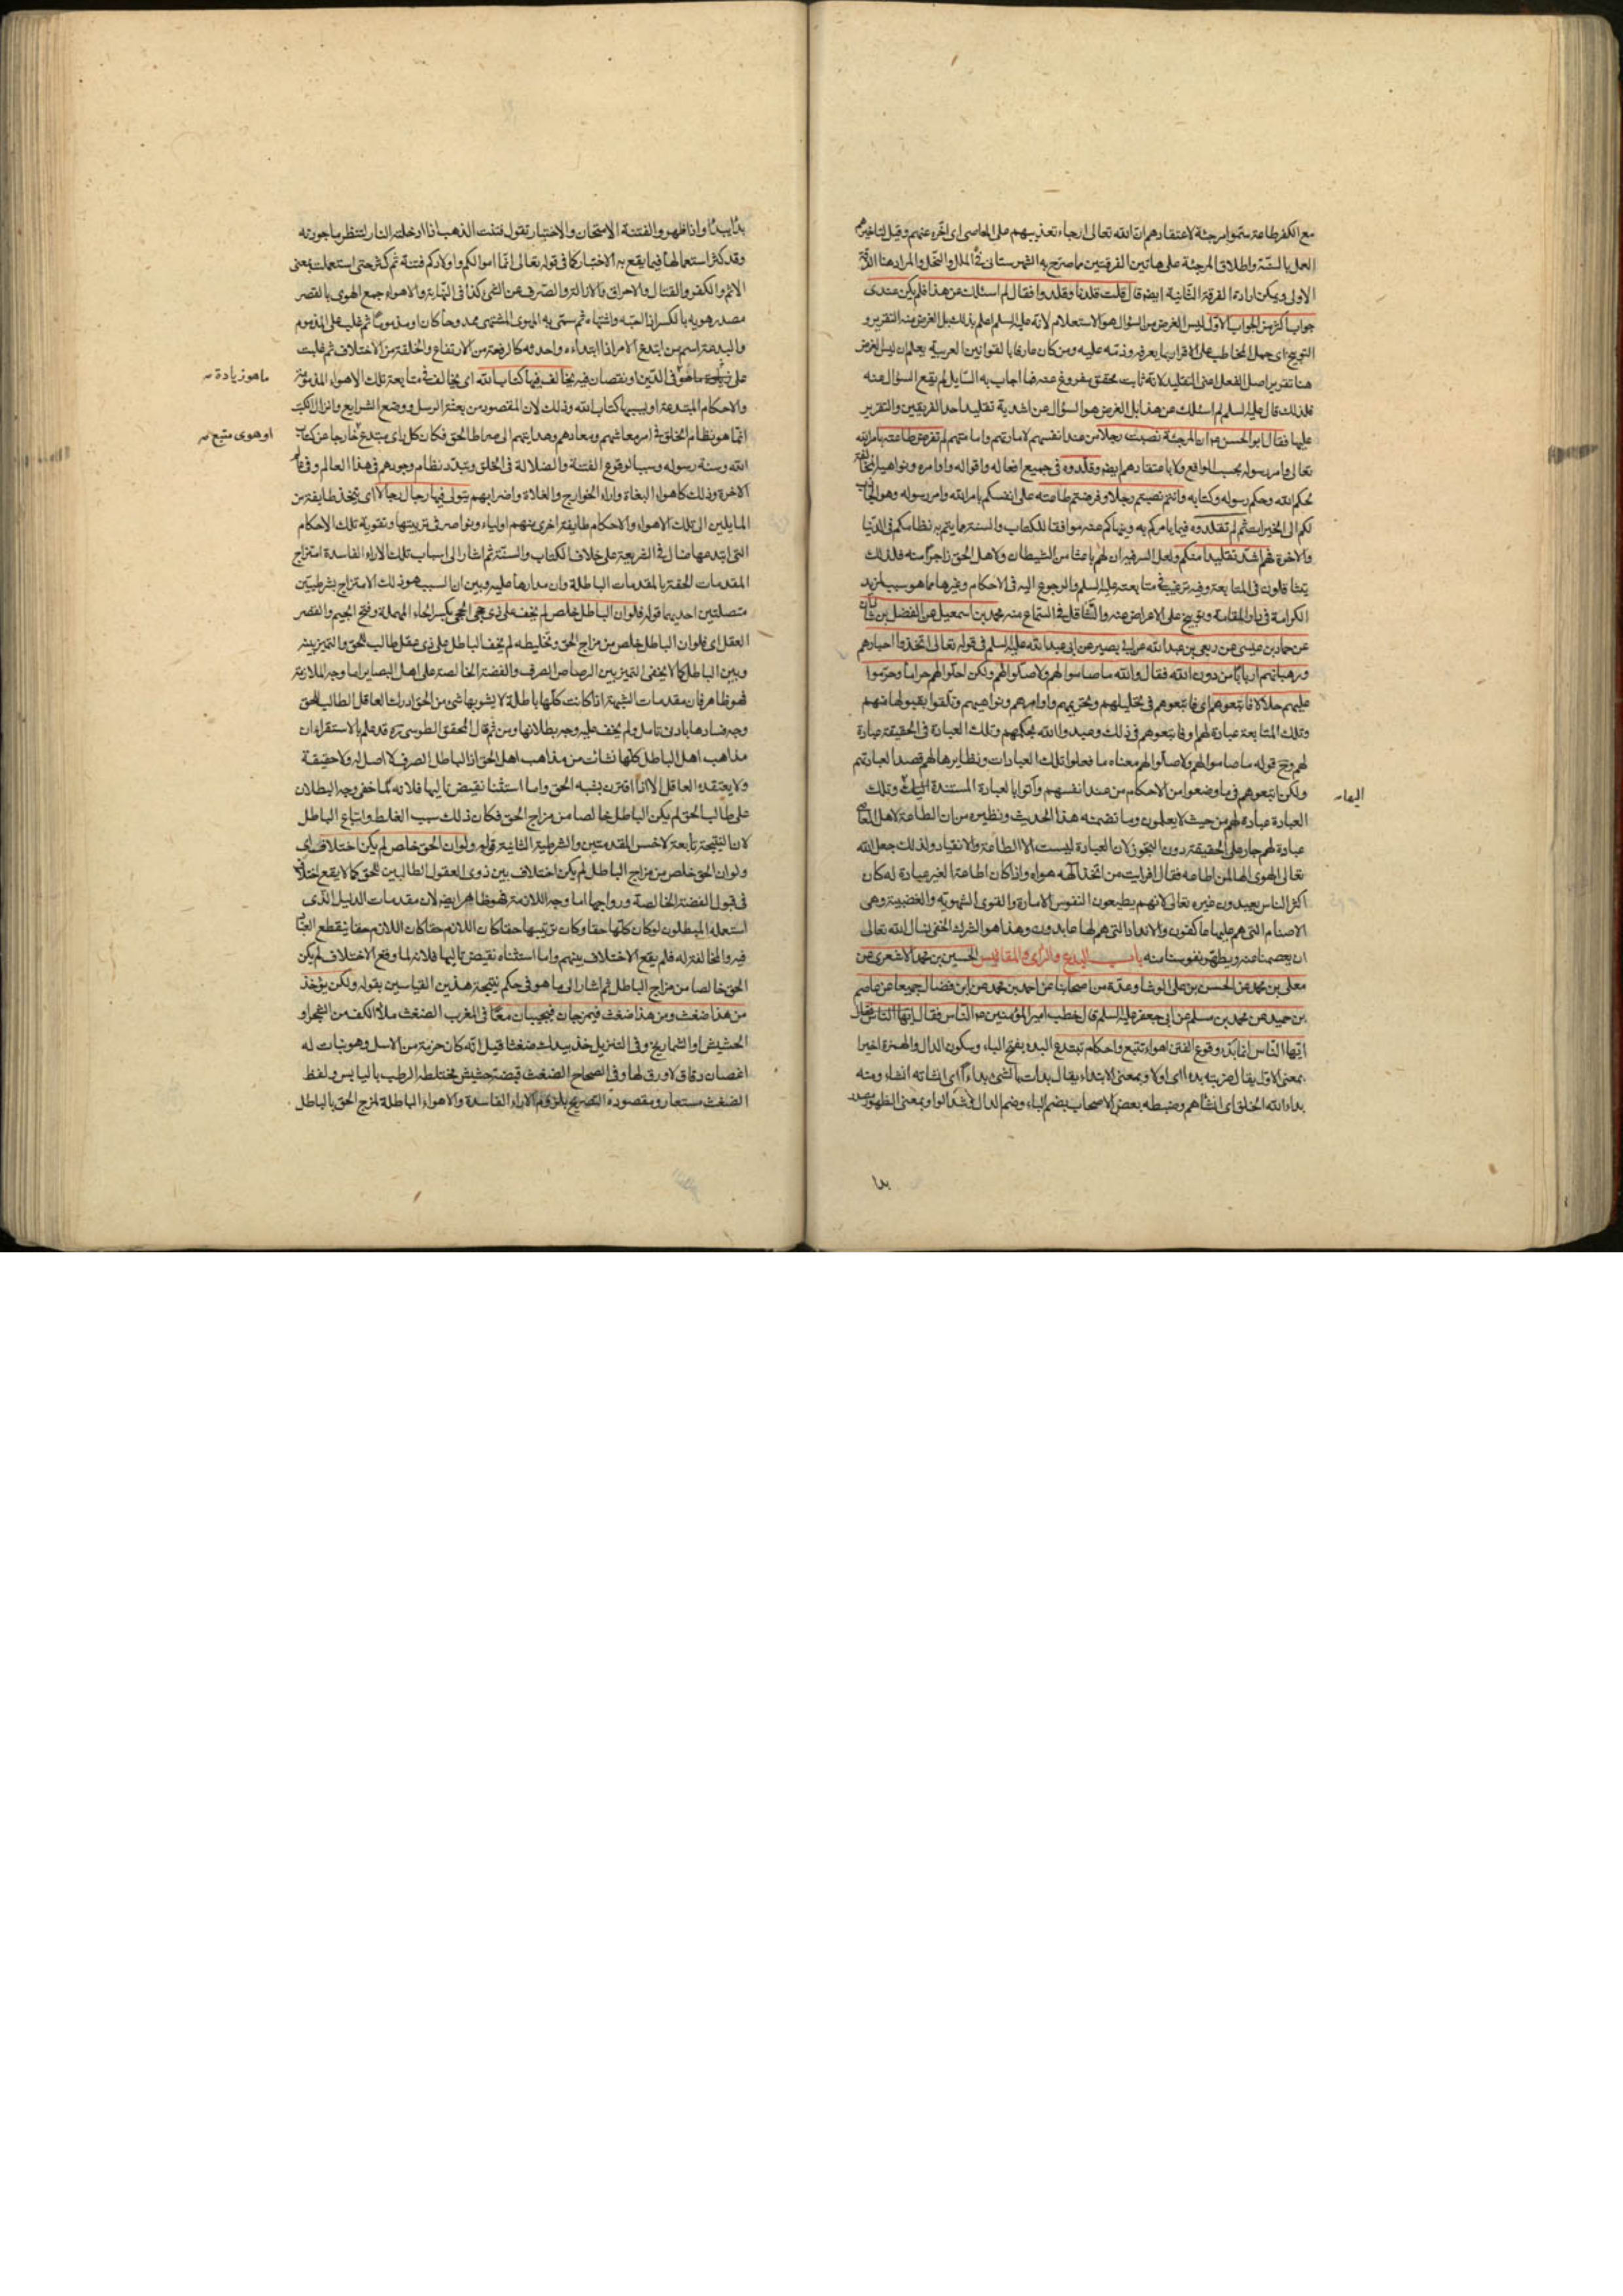 مع الكفر طاعة سموا مرجئة لاعتقادهم ان الله تعالى ارجاء تعذيبهم على المعاصى اى اخره عنهم وقيل لتاخيرهم
العمل بالنية واطلاق المرجئة على هاتين الفرقتين ما صرح به الشهرستانى فى الملل والنحل والمراد هنا
الاولى ويمكن ارادة الفرقة الثانية ايضا قال قلت قلدنا وقلدوا فقال لم اسئلك عن هذا فلم يكن عندى
جواب اكثر من الجواب الاول ليس الغرض من السؤال هو الاستعلام لانه عليه السلم اعلم بذلك بل الغرض منه التقرير و
التوبيخ اى حمل المخاطب على الاقرار بما يعرفه وذمه عليه ومن كان عارفا بالقوانين العربية يعلم ان ليس الغرض
هنا تقرير اصل الفعل اعنى التقليد لانه ثابت محقق مفروغ عنه فما اجاب به السايل لم يقع السؤال عنه
فلذلك قال عليه السلم لم اسئلك عن هذا بل الغرض هو السؤال عن اشدية تقليد احد الفريقين والتقرير
عليها فقال ابو الحسن ع ان المرجئة نصبت رجلا من عند انفسهم لامارتهم وامامتهم لم تفرض طاعته بامر الله
تعالى وامر رسوله بحسب الواقع ولا باعتقادهم ايضا وقلدوه فى جميع افعاله واقواله واوامره ونواهيه
لحكم الله وحكم رسوله وكتابه وانتم نصبتم رجلا وفرضتم طاعته على انفسكم بامر الله وامر رسوله وهو
لكم الى الخيرات ثم لم تقلدوه فيما يامركم به وينهاكم عنه موافقا للكتاب والسنة وما يتم به نظامكم فى الدنيا
والاخرة فهم اشد منكم تقليدا ولعل السر فيه ان لهم باعثا من الشيطان ولاهل الحق زاجرا منه فلذلك
يتثاقلون فى المتابعة وفيه ترغيب فى متابعته عليه السلم والرجوع اليه فى الاحكام وغيرها مما هو سبب لمزيد
الكرامة فى دار المقامة وتوبيخ على الاعراض عنه والتثاقل فى السماع منه محمد بن اسمعيل عن الفضل بن شاذان
عن حماد بن عيسى عن ربعى بن عبد الله عن ابى بصير عن ابى عبد الله عليه السلم فى قوله تعالى اتخذوا احبارهم
ورهبانهم اربابا من دون الله فقال والله ما صاموا لهم ولا صلوا لهم ولكن احلوا لهم حراما وحرموا
عليهم حلالا فاتبعوهم اى فاتبعوهم فى تحليلهم وتحريمهم واوامرهم ونواهيهم وتلقوا بقبولها منهم
وتلك المتابعة عبادة لهم او فاتبعوهم فى ذلك وعبدوا الله بحكمهم وتلك العبادة فى الحقيقة عبادة
لهم وح قوله ما صاموا لهم ولا صلوا لهم معناه ما فعلوا تلك العبادات ونظايرها لهم قصدا لعبادتهم
ولكن اتبعوهم فى ما وضعوا من الاحكام من عند انفسهم واتوا بالعبادة المستندة وتلك
اليها
العبادة عبادة لهم من حيث لا يعلمون وما تضمنه هذا الحديث ونظيره من ان الطاعة لاهل المعاصى
عبادة لهم جار على الحقيقة دون التجوز لان العبادة ليست الا الطاعة والانقياد ولذلك جعل الله
تعالى الهوى الها لمن اطاعه فقال افرايت من اتخذ الهه هواه واذا كان اطاعة الغير عبادة له كان
اكثر الناس يعبدون غيره تعالى لانهم يطيعون النفوس الامارة والقوى الشهوية والغضبية وهى
الاصنام التى هم عليها عاكفون والانداد التى هم لها عابدون وهذا هو الشرك الخفى نسال الله تعالى
ان يعصمنا عنه ويطهر نفوسنا منه باب البدع والراى والمقاييس الحسين بن محمد الاشعرى عن
معلى بن محمد عن الحسن بن على الوشا وعدة من اصحابنا عن احمد بن محمد عن ابن فضال جميعا عن عاصم
بن حميد عن محمد بن مسلم عن ابى جعفر عليه السلم قال خطب امير المؤمنين ع الناس فقال ايها الناس
ايها الناس انما بدء وقوع الفتن اهواء تتبع واحكام تبتدع البدء بفتح الباء وسكون الدال والهمزة اخيرا
بمعنى الاول يقال ضربته بدءا اى اولا وبمعنى الابتداء يقال بدات بالشئ بداءا اى انشاته انشاء ومنه
بداء الله الخلق اى انشاهم وضبطه بعض الاصحاب بضم الباء وضم الدال وشد الواو بمعنى الظهور مصدر
بدا
بدا يبدو اذا ظهر والفتنة الامتحان والاختبار تقول فتنت الذهب اذا ادخلته النار لتنظر ما جودته
وقد كثر استعمالها فيما يقع به الاختبار كما فى قوله تعالى انما اموالكم واولادكم فتنة ثم كثر حتى استعملت بمعنى
الاثم والكفر والقتال والاحراق والازالة والصرف عن الشئ كذا فى النهاية والاهواء جمع الهوى بالقصر
مصدر هويه بالكسر اذا احبه واشتهاه ثم سمى به الهوى المشتهى ممدوحا كان او مذموما ثم غلب على المذموم
والبدعة اسم من ابتدع الامر اذا ابتداءه واحدثه كالرفعة من الارتفاع والخلفة من الاختلاف ثم غلبت
على ما هو فى الدين او نقصان فيه يخالف فيها كتاب الله اى يخالف فى متابعة تلك الاهواء المذمومة
ما هو زيادة
والاحكام المبتدعة او بسببها كتاب الله وذلك لان المقصود من بعثة الرسل ووضع الشرايع وانزال الكتب
انما هو نظام الخلق فى امر معاشهم ومعادهم وهدايتهم الى صراط الحق فكان كل راى مبتدع خارجا عن كتاب
او هوى متبع
الله وسنة رسوله وسببا لوقوع الفتنة والضلالة فى الخلق وتبدد نظام وجودهم فى هذا العالم وفى عالم
الاخرة وذلك كاهواء البغاة واراء الخوارج والغلاة واضرابهم يتولى فيها رجال رجالا اى يتخذ طايفة من
المايلين الى تلك الاهواء والاحكام طايفة اخرى منهم اولياء ونواصر فى تربيتها وتقوية تلك الاحكام
التى ابتدعها ضال فى الشريعة على خلاف الكتاب والسنة ثم اشار الى اسباب تلك الاراء الفاسدة امتزاج
المقدمات الحقة بالمقدمات الباطلة وان مدارها عليه وبين ان السبب هو ذلك الامتزاج بشرطيتين
متصلتين احديهما قوله فلو ان الباطل خلص لم يخف على ذى حجى الحجى بكسر الحاء المهملة وفتح الجيم والقصر
العقل اى فلو ان الباطل خلص من مزاج الحق وتخليطه لم يخف الباطل على ذى عقل طالب للحق والتميز بينه
وبين الباطل كما لا يخفى التميز بين الرصاص الصرف والفضة الخالصة على اهل البصاير اما وجه الملازمة
فهو ظاهر فان مقدمات الشبهة اذا كانت كلها باطلة لا يشوبها شئ من الحق ادرك العاقل الطالب للحق
وجه فسادها بادنى تامل ولم يخف عليه وجه بطلانها ومن ثم قال المحقق الطوسى ره قد علم بالاستقراء ان
مذاهب اهل الباطل كلها نشات من مذاهب اهل الحق اذ الباطل الصرف لا اصل له ولا حقيقة
ولا يعتقده العاقل الا اذا اقترن بشبه الحق واما استثنا نقيض تاليها فلانه لما خفى وجه البطلان
على طالب الحق لم يكن الباطل خالصا من مزاج الحق فكان ذلك سبب الغلط واتباع الباطل
لان النتيجة تابعة لاخس المقدمتين والشرطية الثانية قوله ولو ان الحق خلص لم يكن اختلاف اى
ولو ان الحق خلص من مزاج الباطل لم يكن اختلاف بين ذوى العقول الطالبين للحق كما لا يقع اختلاف
فى قبول الفضة الخالصة ورواجها اما وجه الملازمة فهو ظاهر ايضا لان مقدمات الدليل الذى
استعمله المبطلون لو كان كلها حقا وكان ترتيبها حقا كان اللازم حقا ينقطع العناد
فيه والمخالفة له فلم يقع الاختلاف بينهم واما استثناء نقيض تاليها فلانه لما وقع الاختلاف لم يكن
الحق خالصا من مزاج الباطل ثم اشار الى ما هو فى حكم نتيجة هذين القياسين بقوله ولكن يؤخذ
من هذا ضغث ومن هذا ضغث فيمزجان فيجيئان معا فى المغرب الضغث ملاء الكف من الشجر او
الحشيش او الشماريخ وفى التنزيل خذ بيدك ضغثا قيل انه كان حزمة من الاسل وهو نبات له
اغصان دقاق لا ورق لها وفى الصحاح الضغث قبضة حشيش مختلطة الرطب باليابس ولفظ
الضغث مستعار ومقصوده التصريح بلزوم الاراء الفاسدة والاهواء الباطلة لمزج الحق بالباطل